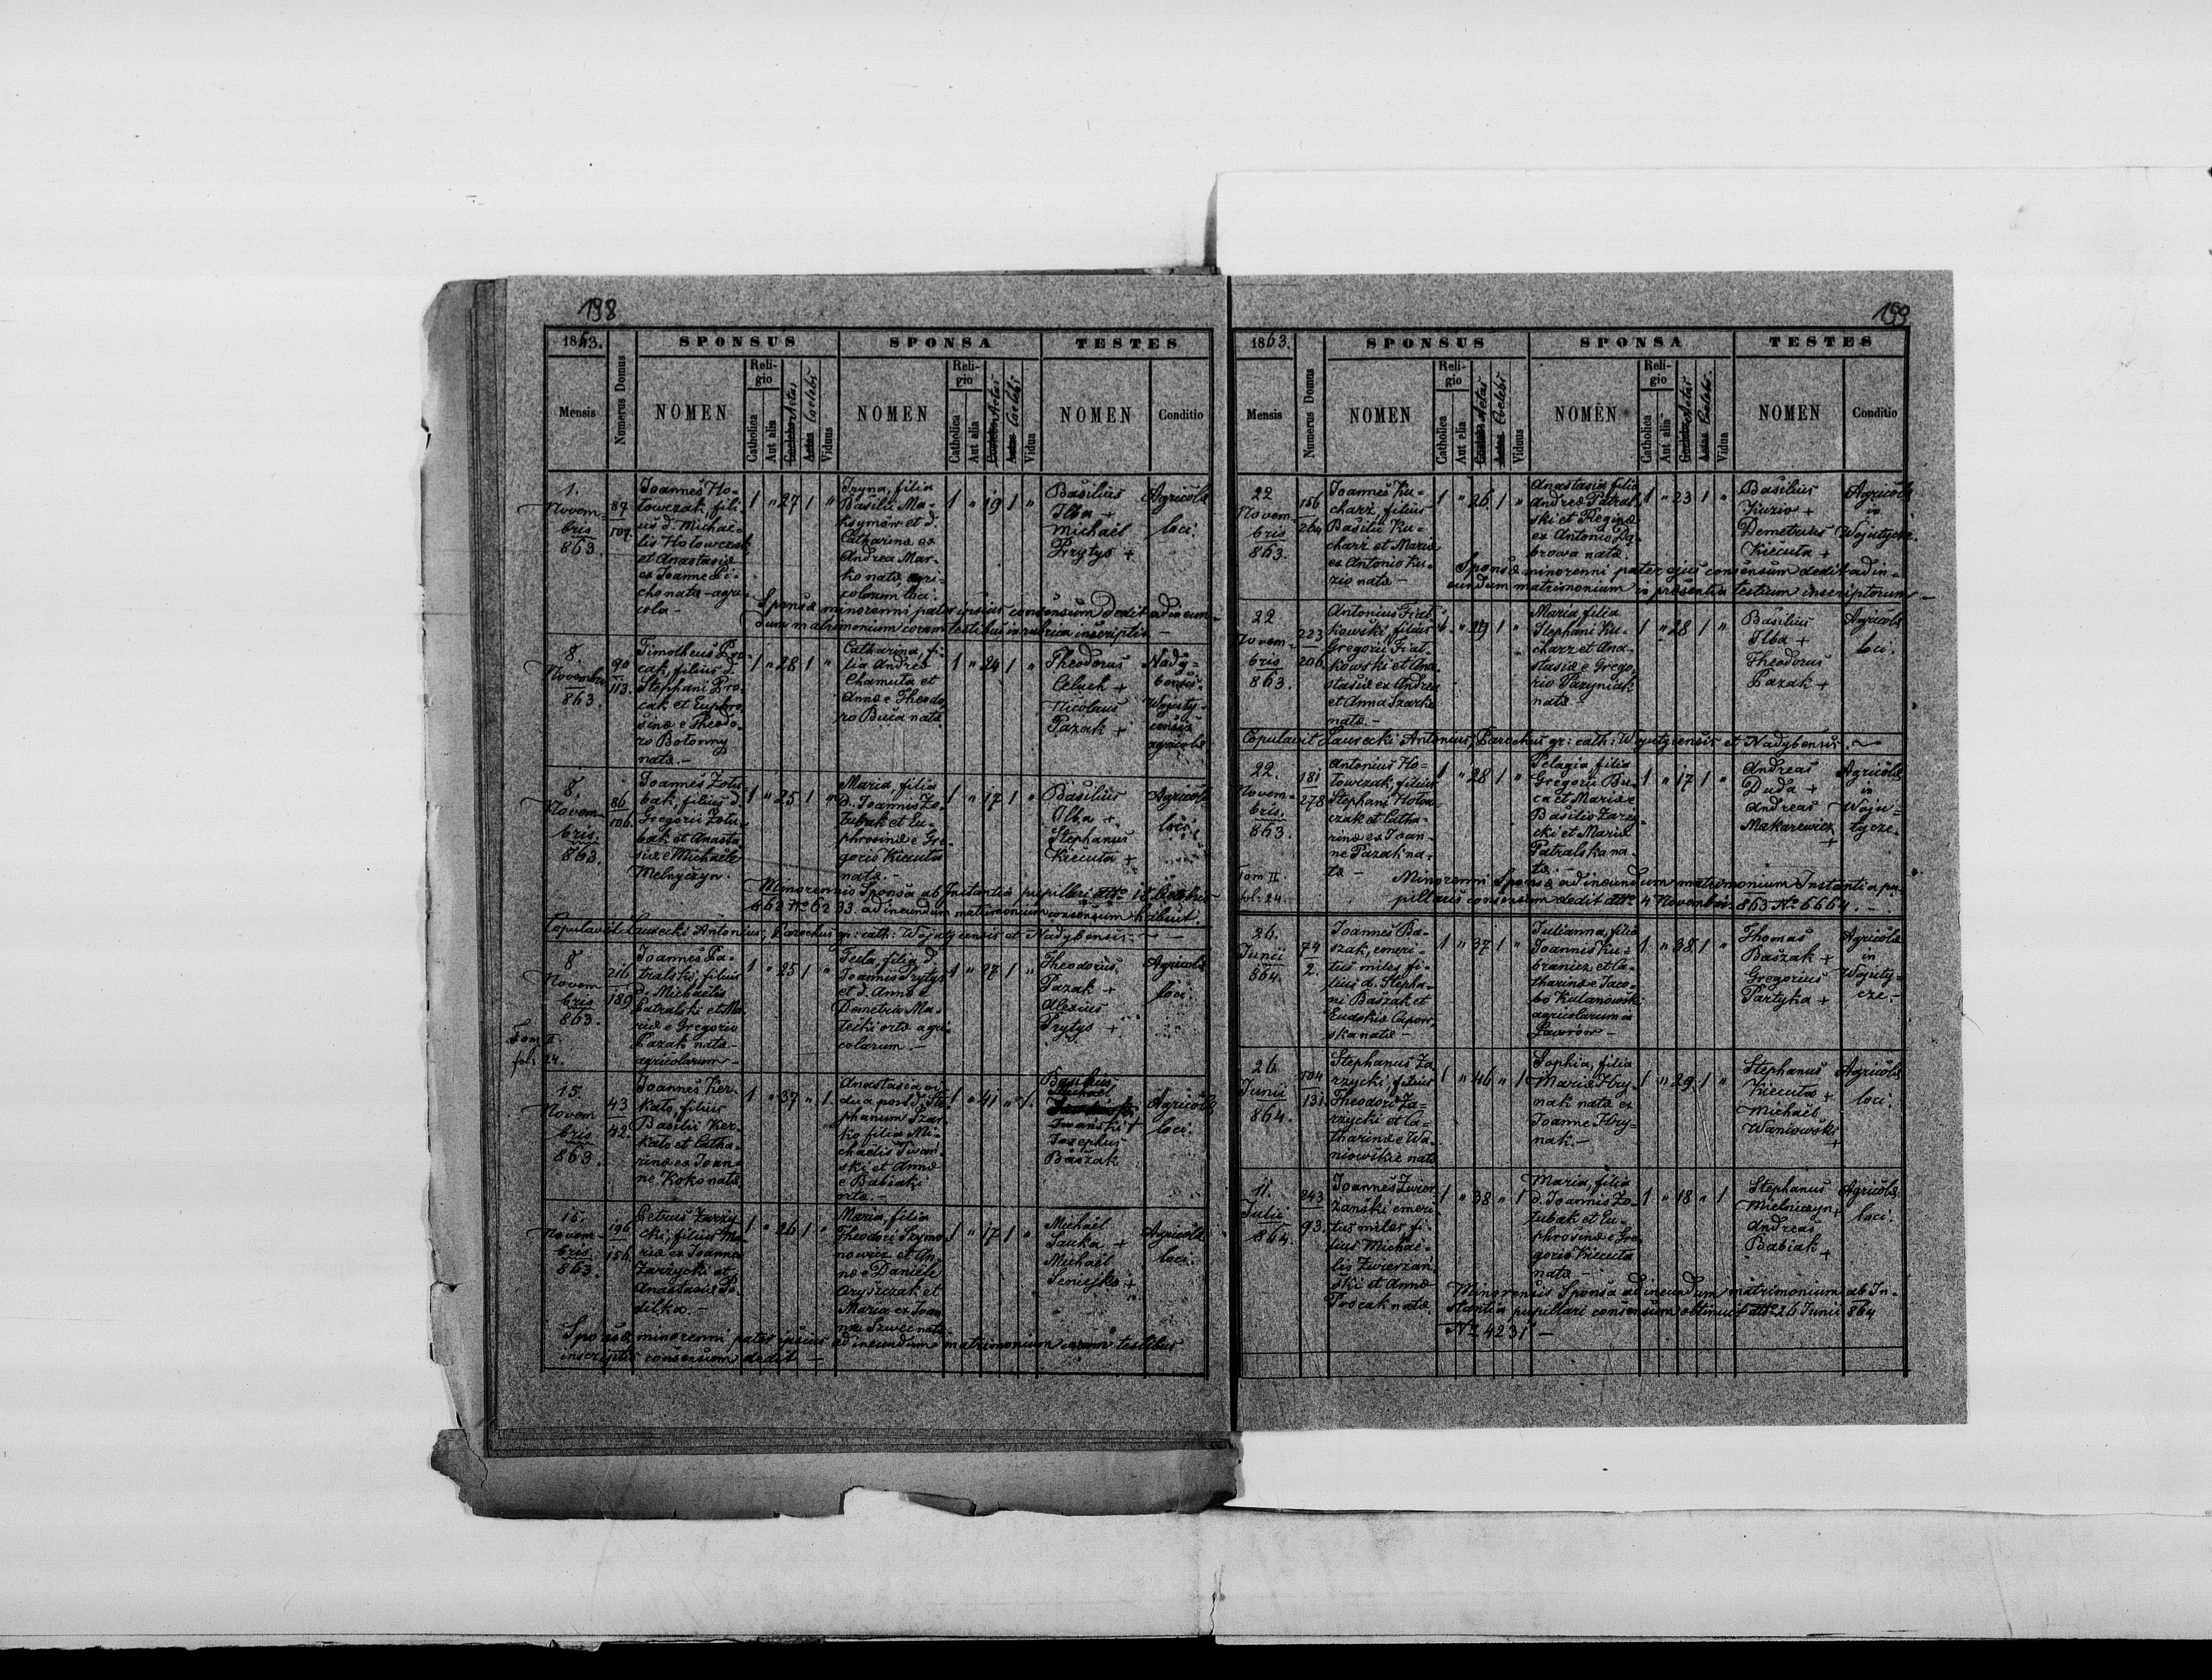 198
1863.
Mensis
Numerus Domus
SPONSUS
NOMEN
Reli-
gio
Catholica
Aut alia
Aetas
Coelebs
Viduus
SPONSA
NOMEN
Reli-
gio
Catholica
Aut alia
Aetas
Coelebs
Vidua
TESTES
NOMEN
Conditio
1.
Novem-
bris
863.
87
107
Joannes Ho-
towczak, fili-
us d. Michae-
lis Hotowczak
et Anastasiæ
ex Joanne Pi-
cho natæ - agri-
cola -
1 " 27 1 "
Iryna, filia
Basilii Ma-
ksymów et d.
Catharinæ ex
Andrea Mar-
ko natæ, agri-
colarum
1 " 19 1 "
Basilius
Ilba +
Michaël
Prytys +
Agricolæ
loci.
Sponsæ minorenni pater ipsius consensum dedit ad ineun-
dum matrimonium coram testibus in rubrica inscriptis -
8.
Novembris
863.
90
113.
Timotheus Pro-
cak, filius d.
Stephani Pro-
cak et Euphro-
sinæ e Theodo-
ro Botonny
natæ. -
1 " 28 1 "
Catharina, fi-
lia Andreæ
Chamuta et
Annæ e Theodo-
ro Buca natæ
1 " 24 1 "
Theodorus
Celuch +
Nicolaus
Pazak +
Nady-
bensis
Wojuty-
censis
agricolæ
8.
Novem-
bris.
863.
86
106.
Joannes Zotu-
bak, filius d.
Gregorii Zotu-
bak et Anasta-
siæ e Michaële
Melnyczyn.
1 " 25 1 "
Maria, filia
d. Joannis Zo-
tubak et Eu-
phrosinæ e Gre-
gorio Kiecuta
natæ. -
1 " 17 1 "
Basilius
Ilba +
Stephanus
Kiecuta +
Agricolæ
loci.
Minorennis Sponsa ab Instantia pupillari
863 No 6233. ad ineundum matrimonium consensum habuit.
Copulavit Laurecki Antonius, Parochus gr: cath: Wojutycensis et Nadybensis. -
8
Novem-
bris
863.
Tom II.
fol. 24.
216
189
Joannes Pa-
tralski, filius
d. Michaëlis
Patralski et Ma-
riæ e Gregorio
Pazak natæ -
agricolarum -
1 " 25 1 "
Tecla, filia d.
Joannis Prytys
et d. Annæ e
Demetrio Ma-
tecki ortæ agri-
colarum. -
1 " 27 1 "
Theodorus
Pazak +
Alexius
Prytys +
Agricolæ
loci.
15.
Novem-
bris
863.
43
42.
Joannes Ker-
kato, filius
Basilii Ker-
kato et Catha-
rinæ ex Joan-
ne Koko natæ
1 " 37 " 1.
Anastasia vi-
dua post d. Ste-
phanum Szar-
ko filia Mi-
chaëlis Iwan-
ski et Annæ
e Babiaki
ortæ. -
1 " 41 " 1.
Basilius
Iwanski +
Josephus
Baszak
Agricolæ
loci.
15.
Novem-
bris.
863.
196
156.
Petrus Zarzy-
cki, filius Ma-
riæ ex Joanne
Zarzycki et
Anastasia Po-
dilka. -
1 " 26 1 "
Maria, filia
Theodori Szymo-
nowicz et An-
næ e Daniële
Oryszczak et
Maria ex Joan-
ne Szwec natæ
1 " 17 1 "
Michaël
Sauka +
Michaël
Senejko +
Agricolæ
loci.
Sponsæ minorenni pater ipsius ad ineundum matrimonium coram testibus
inscriptis consensum dedit -
199
1863.
Mensis
Numerus Domus
SPONSUS
NOMEN
Reli-
gio
Catholica
Aut alia
Aetas
Coelebs
Viduus
SPONSA
NOMEN
Reli-
gio
Catholica
Aut alia
Aetas
Coelebs
Vidua
TESTES
NOMEN
Conditio
22
Novem-
bris
863.
156
264
Joannes Ku-
charz, filius
Basilii Ku-
charz et Mariæ
ex Antonio Ku-
zio natæ -
1 " 26 1 "
Anastasia filia
Andreæ Patral-
ski et Reginæ
ex Antonio Dą-
browa natæ.
1 " 23 1 "
Basilius
Kuzio +
Demetrius
Kiecuta +
Agricolæ
in
Wojutycze.
Sponsæ minorenni pater ejus consensum dedit ad in-
eundum matrimonium in præsentia testium inscriptorum -
22
Novem-
bris
863.
223
206.
Antonius Fiat-
kowski, filius
Gregorii Fiat-
kowski et Ana-
stasiæ ex Andrea
et Anna Szarko
natæ. -
1. " 29 1 "
Maria, filia
Stephani Ku-
charz et Ana-
stasiæ e Grego-
rio Pazyniak
natæ -
1 " 28 1 "
Basilius
Ilba +
Theodorus
Pazak +
Agricolæ
loci.
Copulavit Laurecki Antonius, Parochus gr: cath: Wojutycensis et Nadybensis. -
22.
Novem-
bris.
863.
Tom II.
fol. 24.
181
278
Antonius Ho-
towczak, filius
Stephani Hotow-
czak et Catha-
rinæ ex Joan-
ne Pazak na-
tæ -
1 " 28 1 "
Pelagia, filia
Gregorii Bu-
ca et Mariæ e
Basilio Zarzy-
cki et Maria
Patralska na-
tæ. -
1 " 17 1 "
Andreas
Duda +
Andreas
Makarewicz
+
Agricolæ
in
Woju-
tycze.
Minorenni Sponsæ ad ineundum matrimonium Instantia pu-
pillaris consensum dedit dtto 4 Novembris 863 No 6664. -
26.
Junii
864.
74
2.
Joannes Ba-
szak, emeri-
tus miles fi-
lius d. Stepha-
ni Baszak et
Eudokiæ Capow-
ska natæ -
1 " 37 1 "
Julianna, filia
Joannis Ku-
braniez et Ca-
tharinæ e Jaco-
bo Kulanowski
agricolarum in
Ławrow -
1 " 38 1 "
Thomas
Baszak +
Gregorius
Partyka +
Agricolæ
in
Wojuty-
cze. -
26
Junii
864.
104
131.
Stephanus Za-
rzycki, filius
Theodori Za-
rzycki et Ca-
tharinæ e Wa-
niowskie natæ
1 " 46 " 1
Sophia, filia
Mariæ Hry-
nak natæ ex
Joanne Hry-
nak. -
1 " 29 1 "
Stephanus
Kiecuta +
Michaël
Waniowski
+
Agricolæ
loci.
11.
Julii
864.
243
93.
Joannes Zwier-
zanski emeri-
tus miles, fi-
lius Michaë-
lis Zwierzan-
ski et Annæ
Procak natæ.
1 " 38 " 1
Maria, filia
d. Joannis Zo-
tubak et Eu-
phrosinæ e Gre-
gorio Kiecuta
natæ -
1 " 18 " 1
Stephanus
Mielniczyn +
Andreas
Babiak +
Agricolæ.
loci.
Minorennis Sponsa ad ineundum matrimonium ab In-
stantia pupillari consensum obtinuit dtto 26 Junii 864
No 4231 -